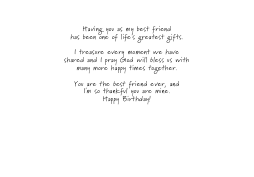 Having you as my best friend
has been one of life's greatest gifts.
I treasure every moment we have
shared and I pray God will bless us with
many more happy times together.
You are the best friend ever, and
I'm so thankful you are mine.
Happy Birthday!